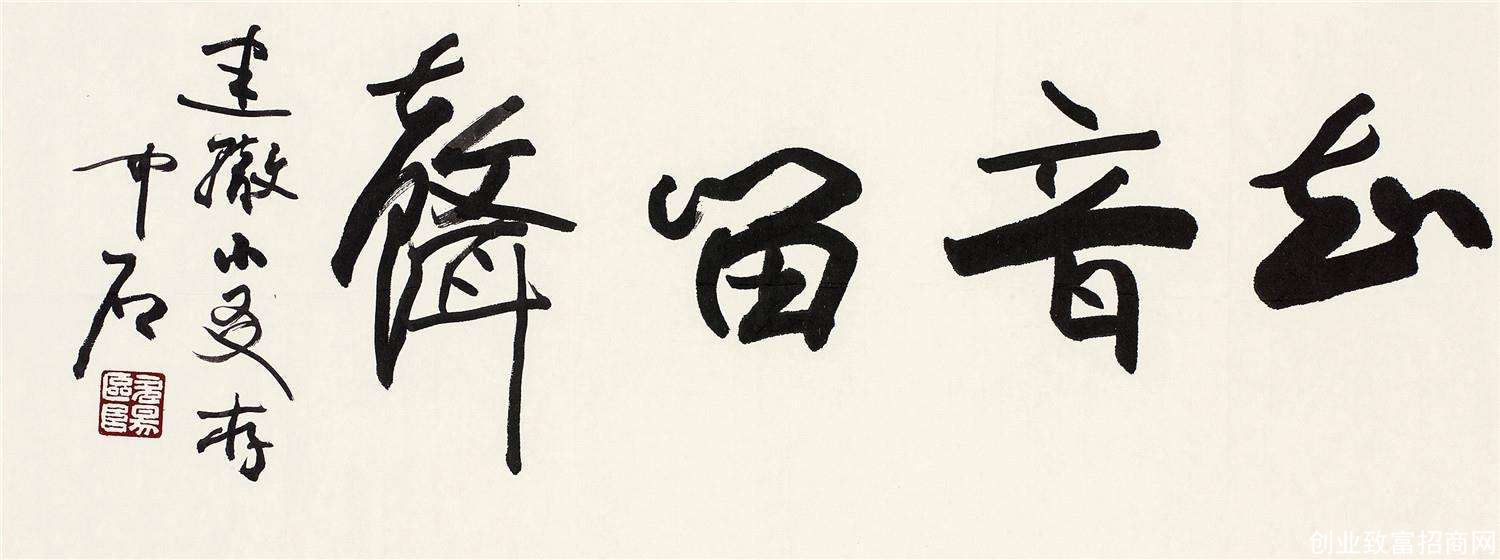 知音留聲
建小存
中石
创业致富招商网